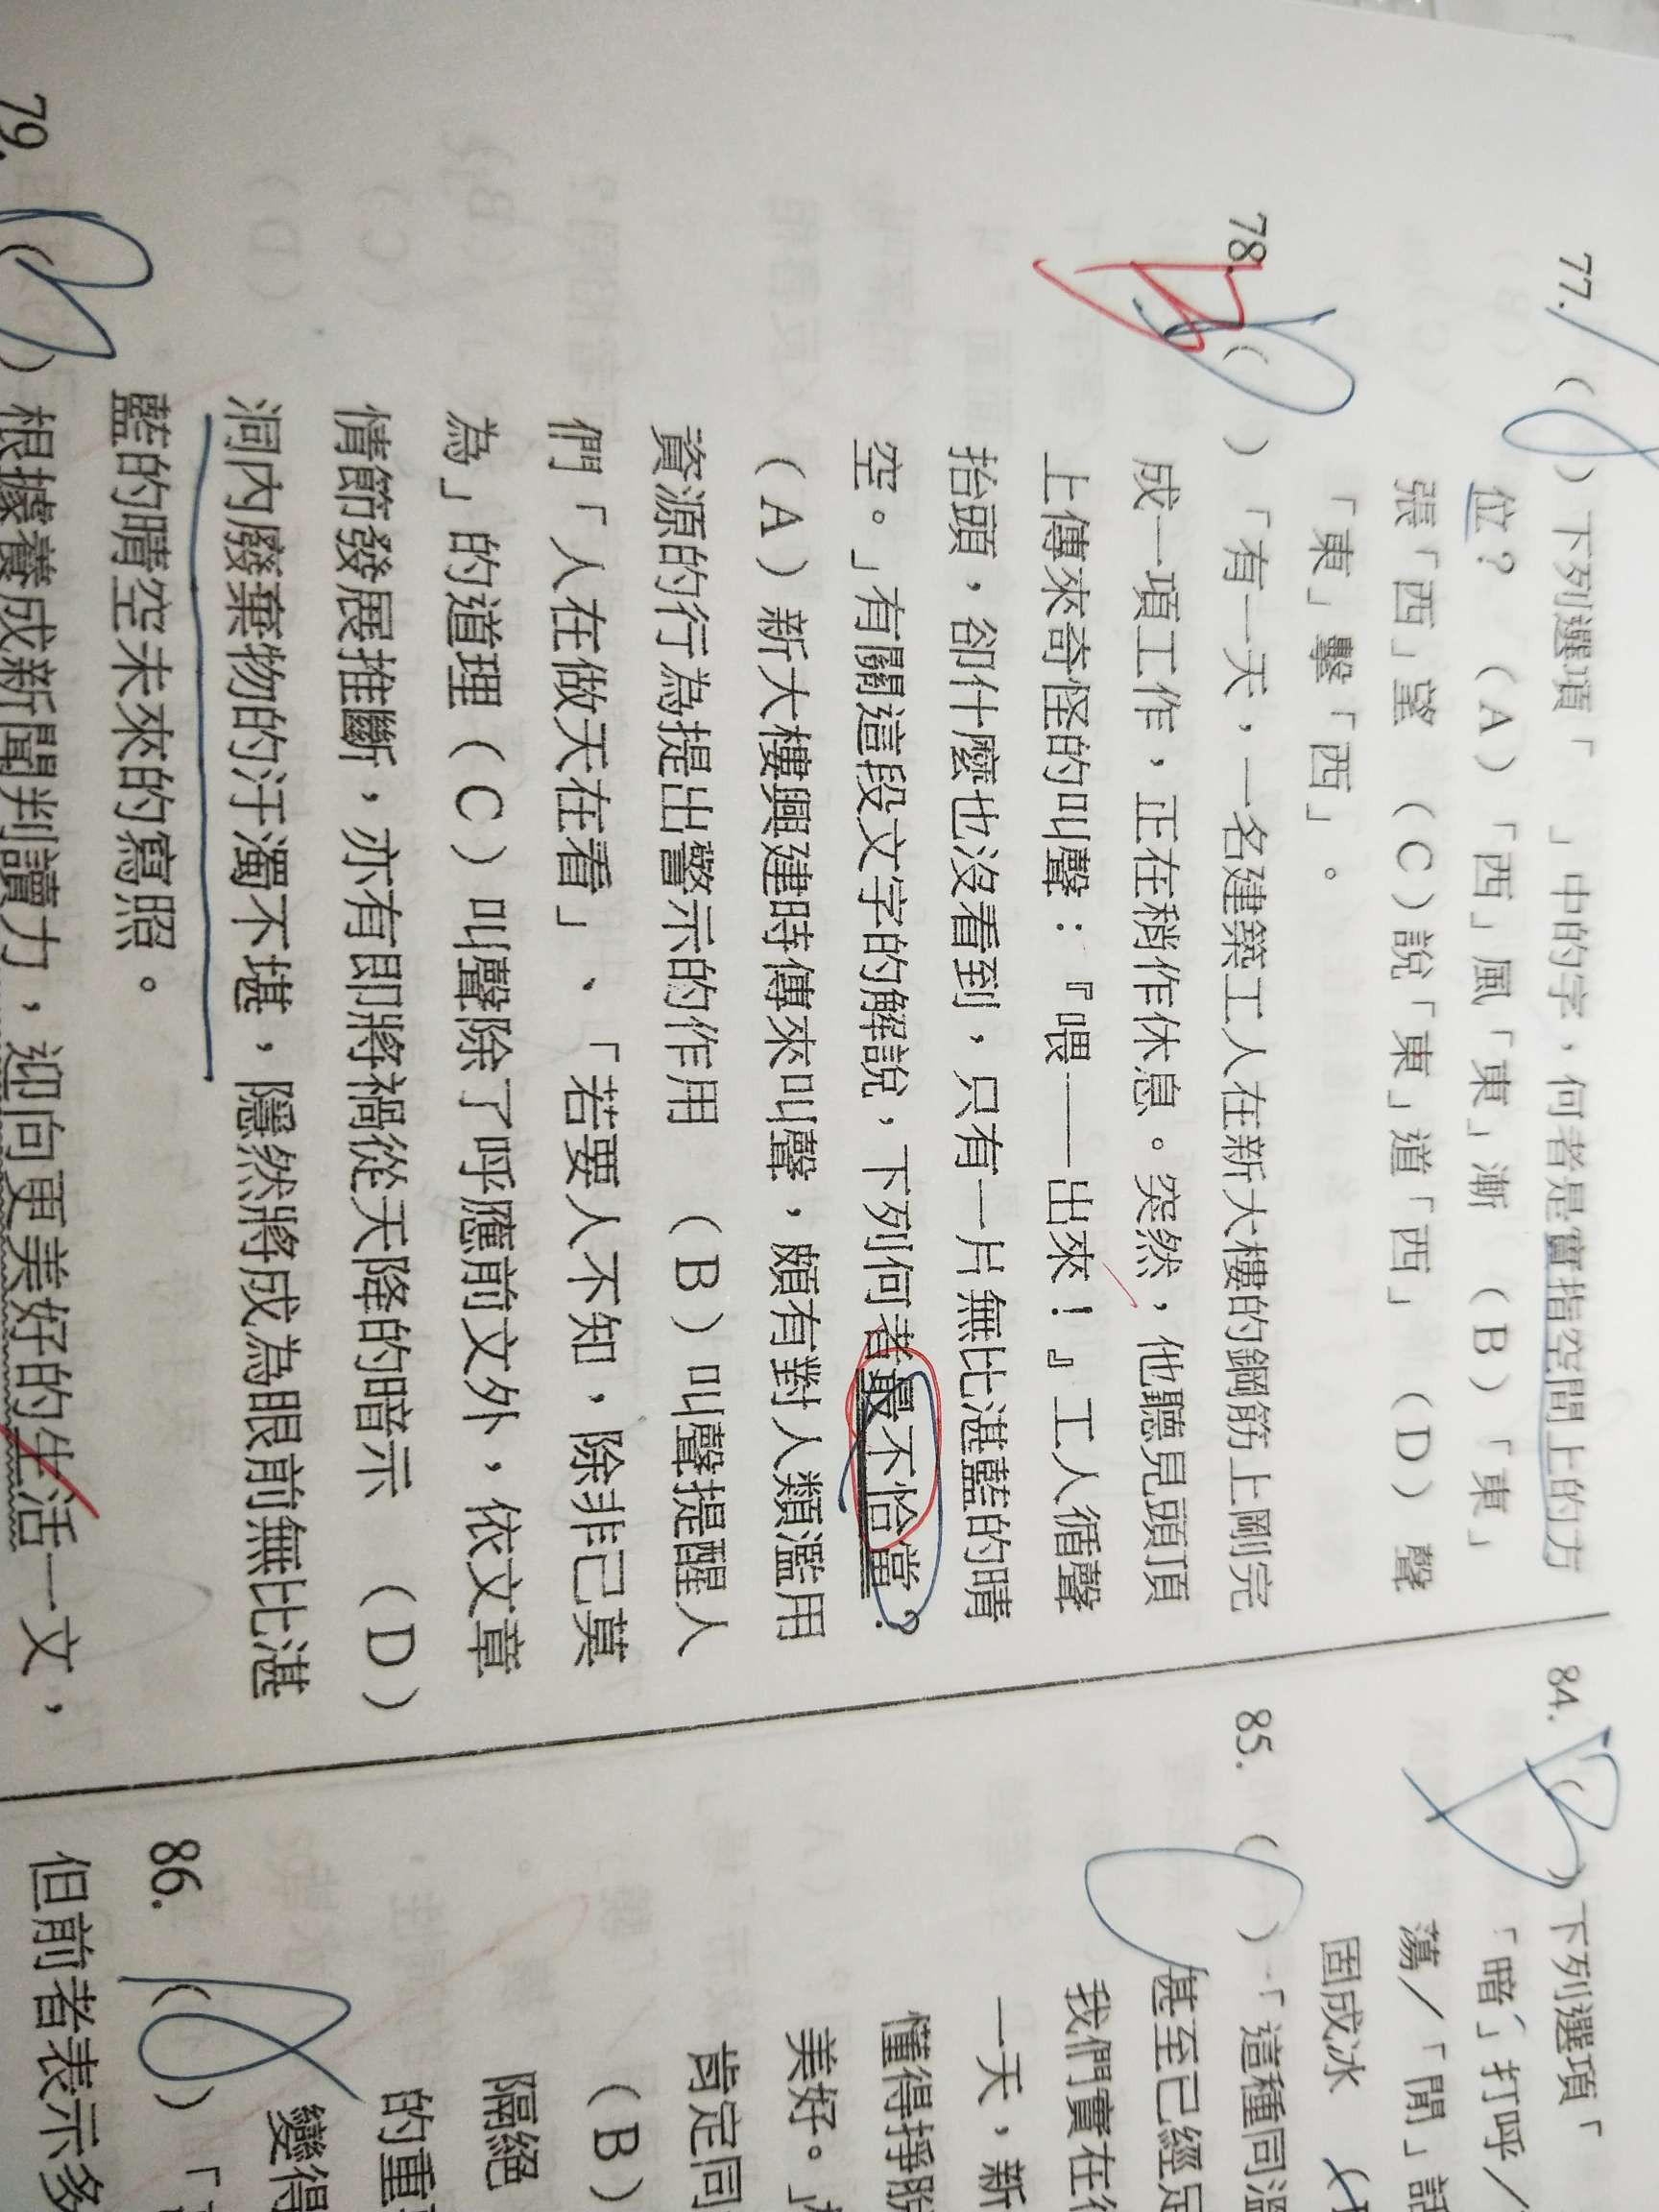 77.（ ）下列選項「　」中的字，何者是實指空間上的方
位？（A）「西」風「東」漸（B）「東」
張「西」望（C）說「東」道「西」（D）聲
「東」擊「西」。
78.（ ）「有一天，一名建築工人在新大樓的鋼筋上剛完
成一項工作，正在稍作休息。突然，他聽見頭頂
上傳來奇怪的叫聲：『喂——出來！』工人循聲
抬頭，卻什麼也沒看到，只有一片無比湛藍的晴
空。」有關這段文字的解說，下列何者最不恰當？
（A）新大樓興建時傳來叫聲，頗有對人類濫用
資源的行為提出警示的作用（B）叫聲提醒人
們「人在做天在看」、「若要人不知，除非己莫
為」的道理（C）叫聲除了呼應前文外，依文章
情節發展推斷，亦有即將禍從天降的暗示（D）
洞內廢棄物的汙濁不堪，隱然將成為眼前無比湛
藍的晴空未來的寫照。
79.（ ）根據養成新聞判讀力，迎向更美好的生活一文，
84.（ ）下列選項「
「暗」打呼／
蕩／「閒」話
固成冰
85.（ ）「這種同溫
甚至已經足
我們實在很
一天，新
懂得掙脫
美好。」
肯定同
（B）
隔絕
的重
變得
86.（ ）「
但前者表示多